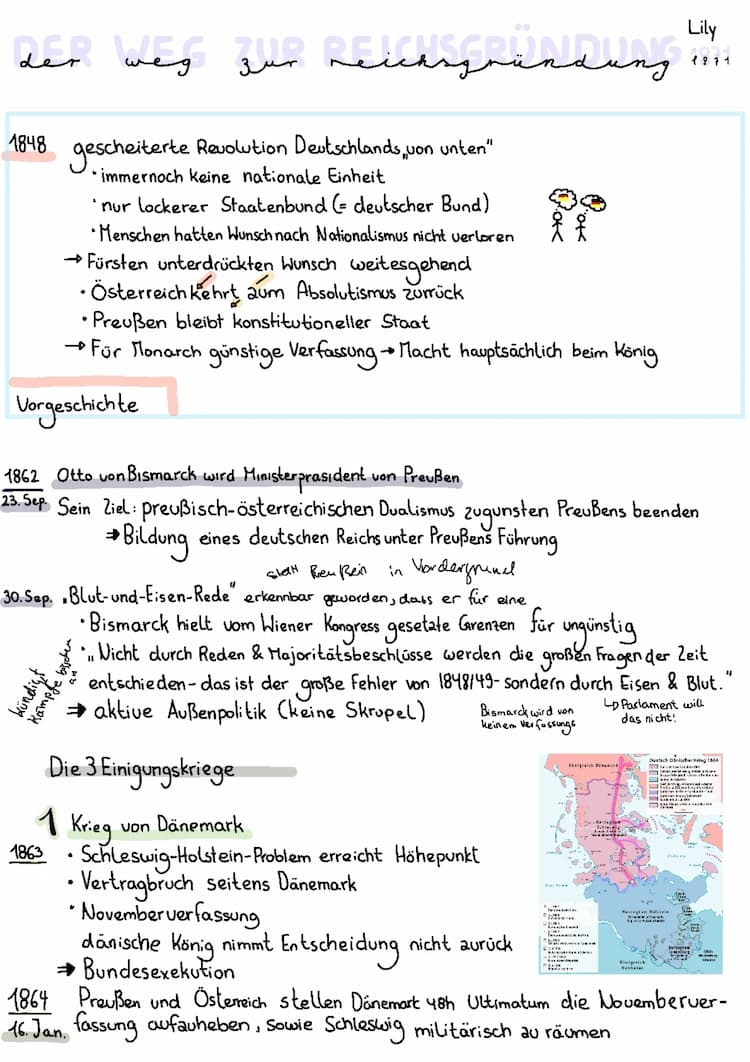 Lily
DER WEG ZUR REICHSGRÜNDUNG 1871
der weg zur reichsgründung 1871
1848 gescheiterte Revolution Deutschlands „von unten"
· immernoch keine nationale Einheit
· nur lockerer Staatenbund (= deutscher Bund)
· Menschen hatten Wunsch nach Nationalismus nicht verloren
→ Fürsten unterdrückten Wunsch weitesgehend
· Österreich kehrt zum Absolutismus zurrück
· Preußen bleibt konstitutioneller Staat
→ Für Monarch günstige Verfassung → Macht hauptsächlich beim König
Vorgeschichte
1862 Otto von Bismarck wird Ministerpräsident von Preußen
23. Sep. Sein Ziel: preußisch-österreichischen Dualismus zugunsten Preußens beenden
⇒ Bildung eines deutschen Reichs unter Preußens Führung
statt in Vordergrund
30. Sep. „Blut-und-Eisen-Rede" erkennbar geworden, dass er für eine
· Bismarck hielt vom Wiener Kongress gesetzte Grenzen für ungünstig
· „Nicht durch Reden & Majoritätsbeschlüsse werden die großen Fragen der Zeit
entschieden - das ist der große Fehler von 1848/49 - sondern durch Eisen & Blut."
kündigt
Kämpfe
an
⇒ aktive Außenpolitik (keine Skrupel)
Bismarck wird von
keinem Verfassungs
↳ Parlament will
das nicht!
Die 3 Einigungskriege
1 Krieg von Dänemark
1863 · Schleswig-Holstein-Problem erreicht Höhepunkt
· Vertragbruch seitens Dänemark
· Novemberverfassung
dänische König nimmt Entscheidung nicht zurück
⇒ Bundesexekution
Königreich Dänemark
Deutsch Dänischer Krieg 1864
Herzogtum
Schleswig
Herzogtum Holstein
Königreich
1864 Preußen und Österreich stellen Dänemark 48h Ultimatum die Novemberver-
16. Jan. fassung aufzuheben, sowie Schleswig militärisch zu räumen